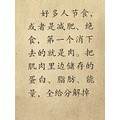 好多人节食，
或者是减肥、绝
食，第一个消下
去的就是肉。把
肌肉里边储存的
蛋白、脂肪、能
量，全给分解掉